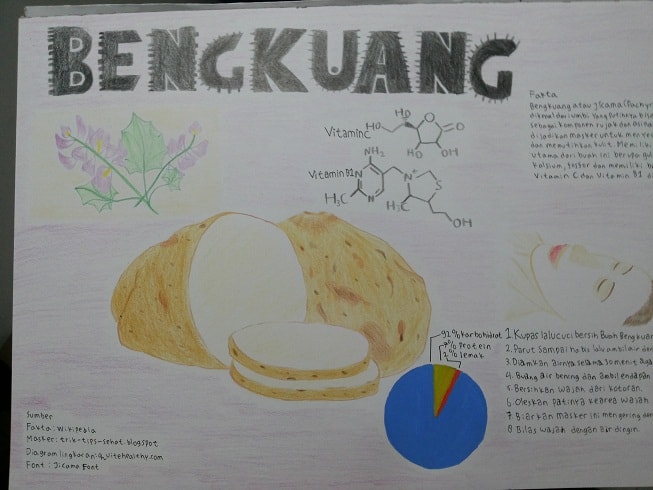 BENGKUANG
Fakta
Bengkuang atau Jicama (Pachyr
dikenal dari umbi yang putihnya bisa
sebagai komponen rujak dan asinan
dijadikan masker untuk menye
dan memutihkan kulit. Memiliki
utama dari buah ini berupa gul
kalsium, fosfor dan memiliki
Vitamin C dan Vitamin B1 di
Vitamin C
HO
HO
O
O
HO
OH
Vitamin B1
NH2
N
N
H3C
N+
S
CH3
OH
92% karbohidrat
7% Protein
1% lemak
1. Kupas lalu cuci bersih Buah Bengkuan
2. Parut sampai habis lalu ambil air den
3. Diamkan airnya selama 30 menit aga
4. Buang air bening dan ambil endapan
5. Bersihkan wajah dari kotoran.
6. Oleskan patinya kearea wajah
7. Biarkan masker ini mengering den
8. Bilas wajah dengan air dingin.
Sumber
Fakta : Wikipedia
Masker: trik-tips-sehat.blogspot
Diagram lingkaran: quitehealthy.com
Font : Jicama Font